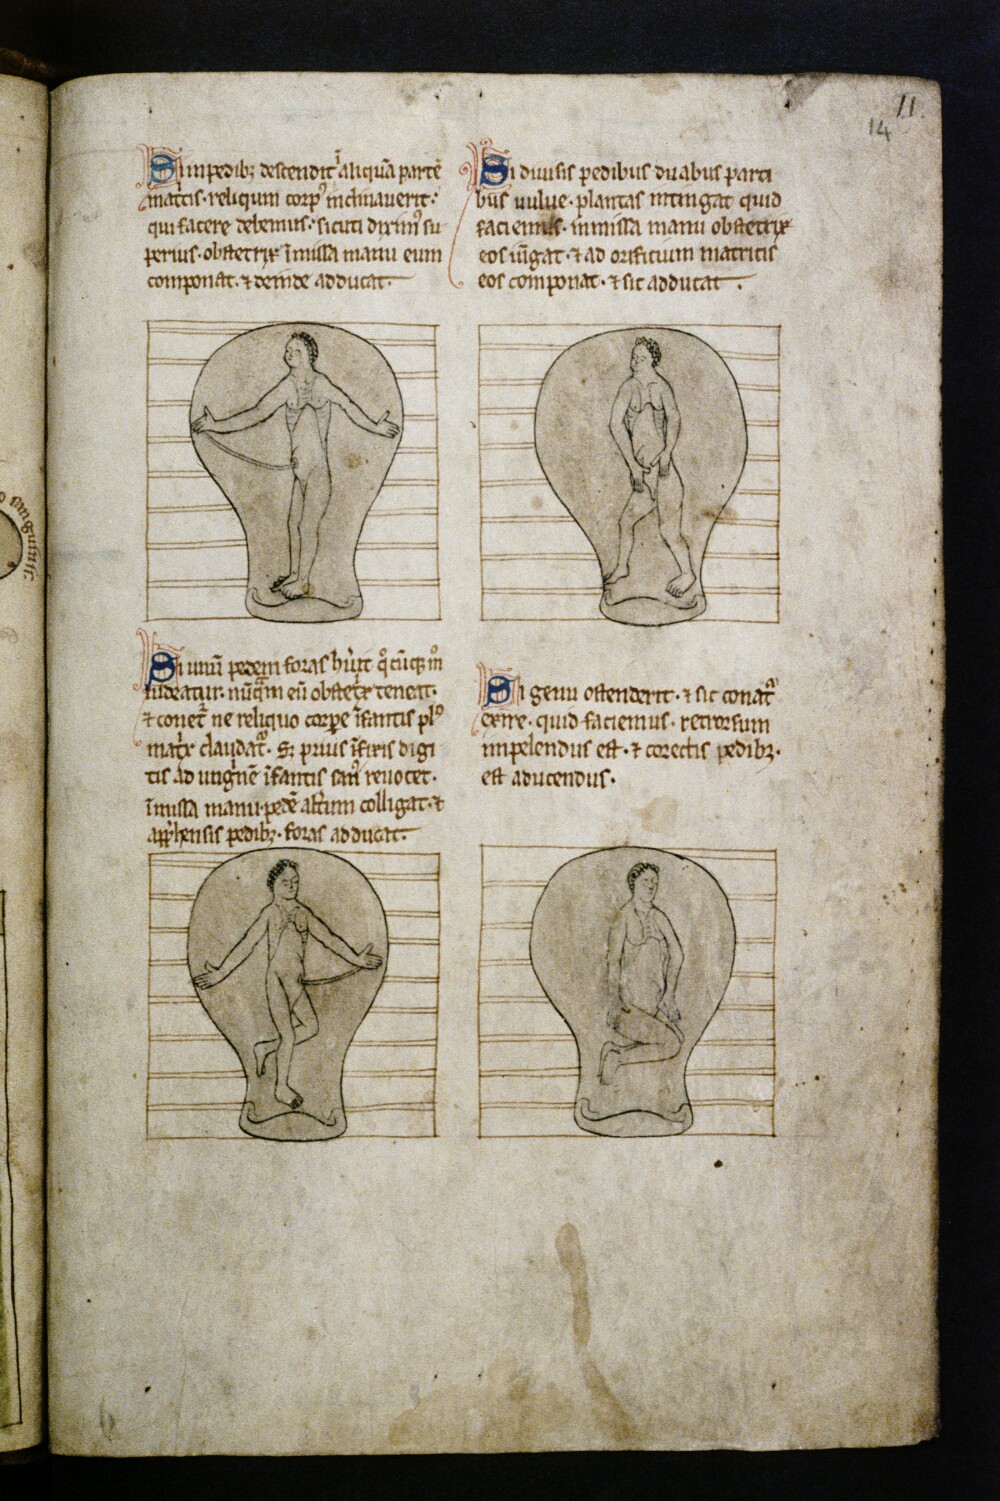 11.
14
Si in pedibꝫ descendit ĩ aliquã partẽ
mat̃cis · reliqum corpꝰ inclinauerit ·
qui facere debemus · sicuti diximꝰ su
perius · obstetrix ĩmissa manu eum
componat · ⁊ deinde adducat ·
Si diuisis pedibus duabus parti
bus uulue · plantas intingat quid
faciemus · inmissa manu obstetrix
eos iũgat · ⁊ ad orificium matricis
eos componat · ⁊ sic adducat ·
Si unũ pedem foras
obstetrix teneat ·
⁊ ne reliquo corpe ĩfantis
claudat̃ · prius digi
tis ad ĩfantis reuocet ·
ĩmissa manu · pedẽ colligat · ⁊
pedibꝫ · foras adducat ·
Si genu ostenderit · ⁊ sic conat̃
exire · quid faciemus · retrorsum
inpelendus est · ⁊ corectis pedibꝫ ·
est aducendus ·
sanguinis